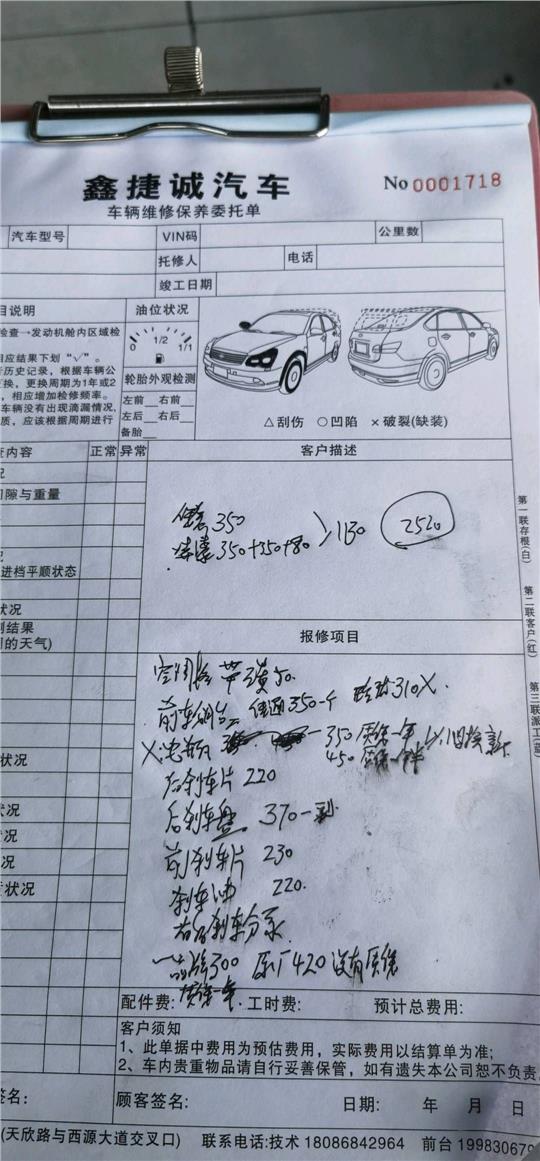 鑫捷诚汽车
No 0001718
车辆维修保养委托单
汽车型号 VIN码 公里数
托修人 电话
竣工日期
目说明 油位状况
检查→发动机舱内区域检
相应结果下划“√”。
历史记录，根据车辆公
更换，更换周期为1年或2
，相应增加检修频率。
车辆没有出现滴漏情况，
质，应该根据周期进行
0 1/2 1/1
轮胎外观检测
左前 右前
左后 右后
备胎
△刮伤 ○凹陷 ×破裂(缺装)
查内容 正常 异常 客户描述
况
间隙与重量
350
350+350+80 1130 2520
进档平顺状态
状况
测结果
的天气)
报修项目
第一联存根(白)
第二联客户(红)
第三联派工(蓝)
50
350一个 310X
X 350 质保一年 旧换新
450 质保
后刹车片 220
后刹车盘 370一副
前刹车片 230
刹车油 220
右后刹车分泵
300 原厂420没有质保
质保一年
状况
状况
状况
状况
状况
配件费: 工时费: 预计总费用:
客户须知
1、此单据中费用为预估费用，实际费用以结算单为准;
2、车内贵重物品请自行妥善保管，如有遗失本公司恕不负责
签名: 顾客签名: 日期: 年 月 日
(天欣路与西源大道交叉口) 联系电话:技术 18086842964 前台 199830679